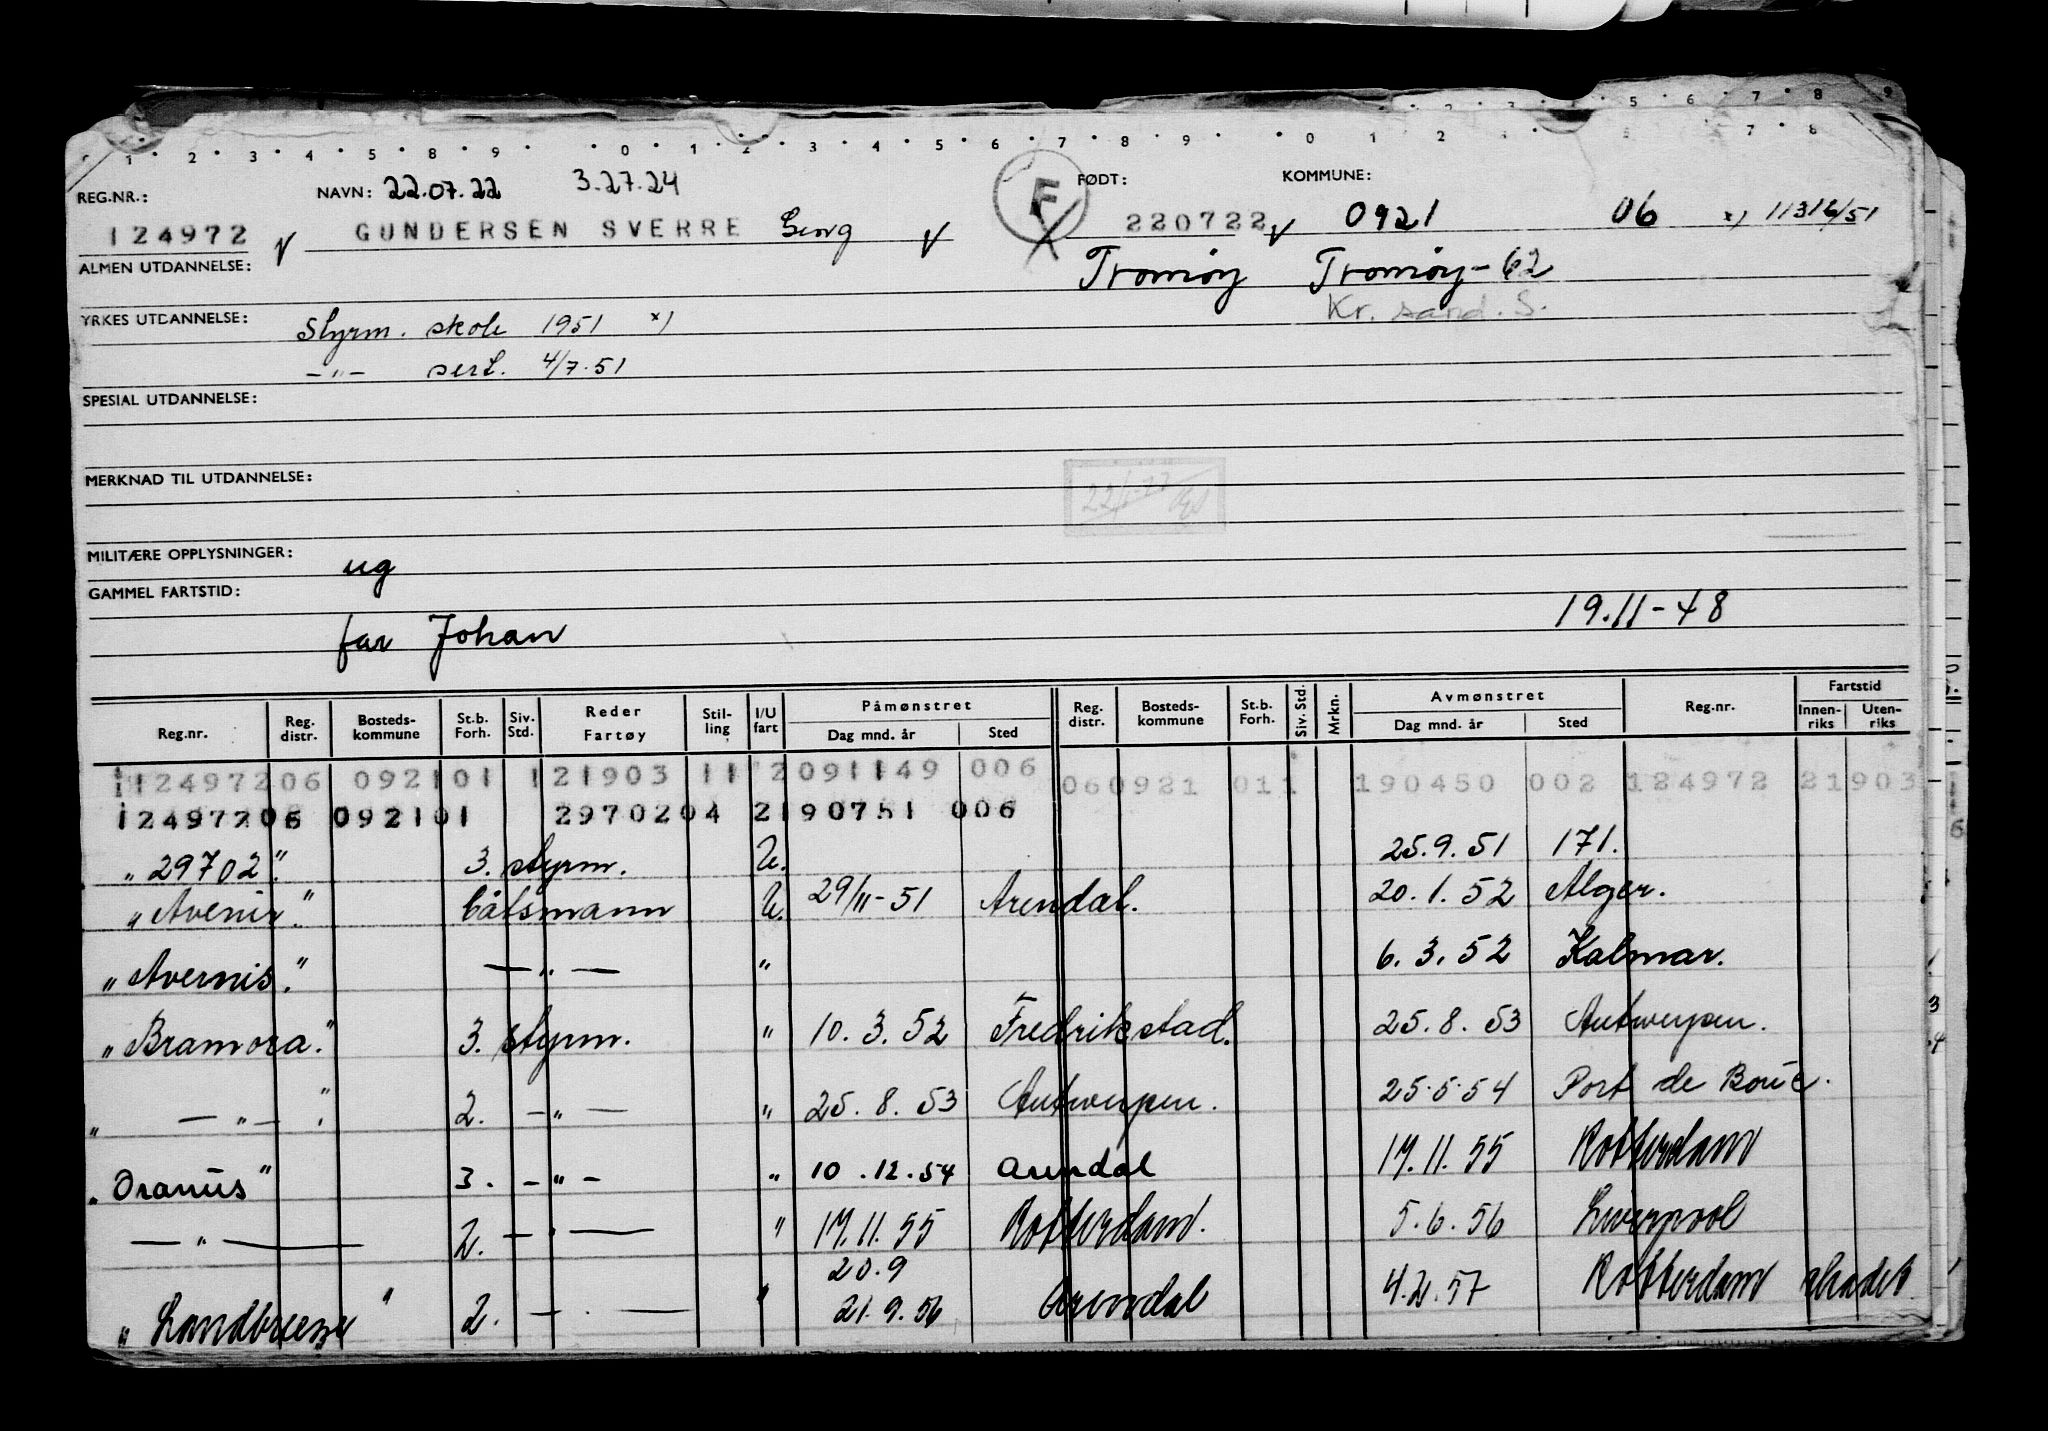 REG.NR.: NAVN: 22.07.22 3.27.24 F FØDT: KOMMUNE:
124972 GUNDERSEN SVERRE Georg 220722 0921 06 x) 11316/51
ALMEN UTDANNELSE: Tromøy Tromøy-62
YRKES UTDANNELSE: Styrm. skole 1951 x) Kr. sand. S.
-"- sert. 4/7.51
SPESIAL UTDANNELSE:
MERKNAD TIL UTDANNELSE:
MILITÆRE OPPLYSNINGER: ug
GAMMEL FARTSTID: 19.11-48
far Johan
Reg.nr. Reg. distr. Bosteds-kommune St.b. Forh. Siv. Std. Reder Fartøy Stil-ling I/U fart Påmønstret Dag mnd. år Sted Reg. distr. Bosteds-kommune St.b. Forh. Siv. Std. Mrkn. Avmønstret Dag mnd. år Sted Reg.nr. Fartstid Innen-riks Uten-riks
12497206 092101 121903 11 2091149 006 060921 011 190450 002 124972 21903
12497206 092101 2970204 2190751 006
"29702". 3. styrm. U. 25.9.51 171.
"Avenir". båtsmann U. 29/11-51 Arendal. 20.1.52 Alger.
"Avernis." -"- " 6.3.52 Kalmar.
"Bramora." 3. styrm. " 10.3.52 Fredrikstad. 25.8.53 Antwerpen.
" -"- " 2. -"- " 25.8.53 Antwerpen. 25.5.54 Port de Bouc.
"Oranus" 3. -"- " 10.12.54 Arendal 17.11.55 Rotterdam
-"- 2. -"- " 17.11.55 Rotterdam. 5.6.56 Liverpool
20.9
"Landbreeze" 2. -"- " 21.9.56 Arendal 4.2.57 Rotterdam skadet.